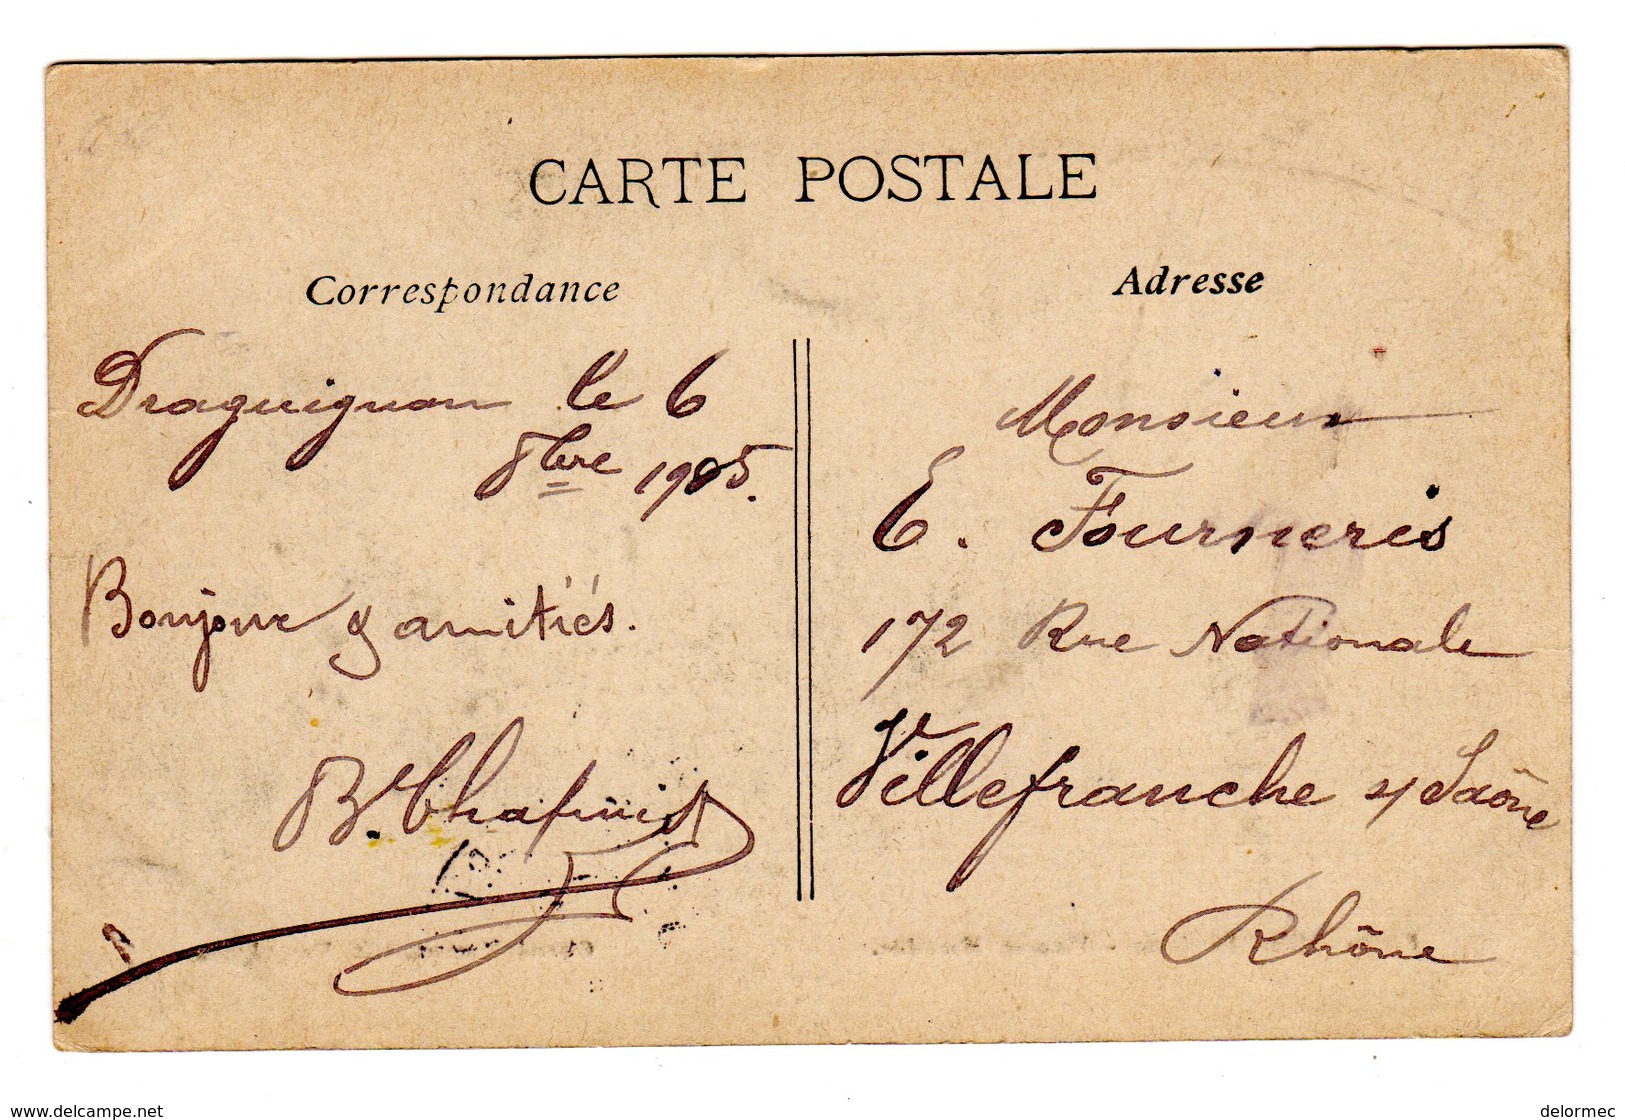 CARTE POSTALE
Correspondance
Draguignan le 6
8bre 1905.
Bonjour & amitiés.
B. Chapuis
Adresse
Monsieur
E. Fourneris
172 Rue Nationale
Villefranche s/ Saône
Rhône
www.delcampe.net
delormec